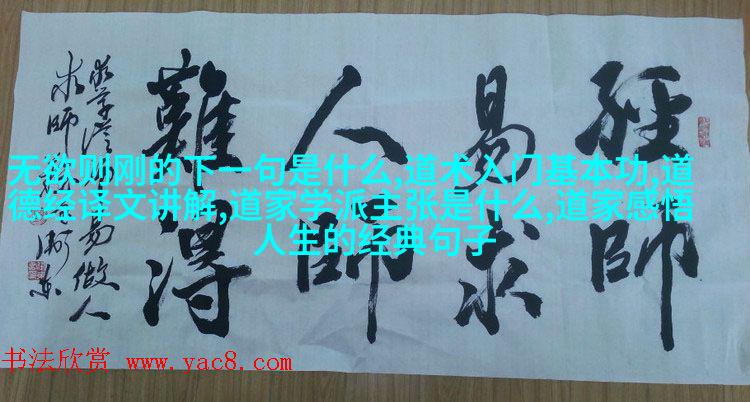 經師
易求
人師
難得
易做人
求師
无欲则刚的下一句是什么,道术入门基本功,道
德经译文讲解,道家学派主张是什么,道家感悟
人生的经典句子
书法欣赏 www.yac8.com